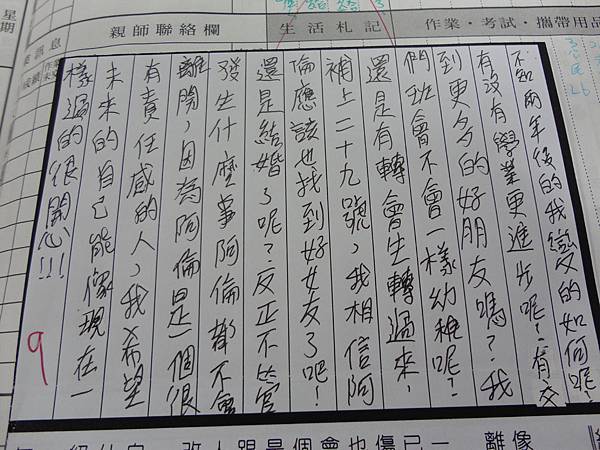 星期
親師聯絡欄
生活札記
作業・考試・攜帶用品
不知兩年後的我變的如何呢?
有沒有學業更進步呢?有交
到更多的好朋友嗎?我
們班會不會一樣幼稚呢?
還是有轉會生轉過來,
補上二十九號,我相信阿
倫應該也找到好女友了吧!
還是結婚了呢?反正不管
發生什麼事阿倫都不會
離開,因為阿倫是一個很
有責任感的人,我希望
未來的自己能像現在一
樣過的很開心!!!
9
人跟是個會也傷已一 離像